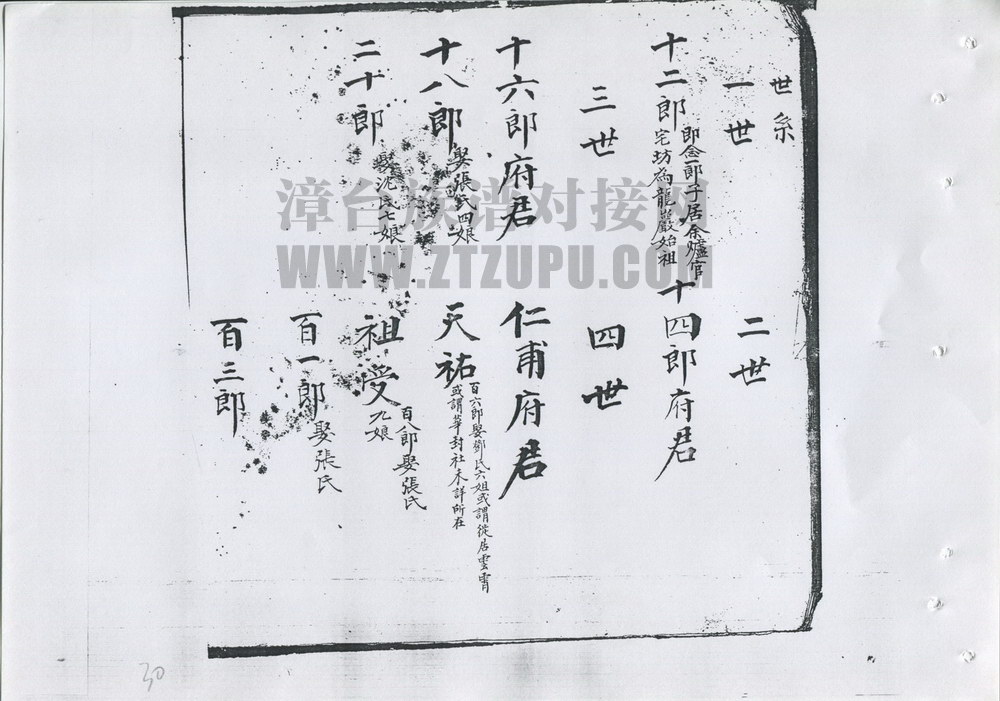 世系
一世
二世
十二郎
即念一郎子居余爐官
宅坊為龍巖始祖
十四郎府君
三世
四世
十六郎府君
仁甫府君
十八郎
娶張氏四娘
天祐
百六郎娶鄧氏六姐或謂從居雲霄
或謂華封社未詳所在
二十郎
娶沈氏七娘
祖受
百八郎娶張氏
九娘
百一郎
娶張氏
百三郎
漳台族谱对接网
WWW.ZTZUPU.COM
30